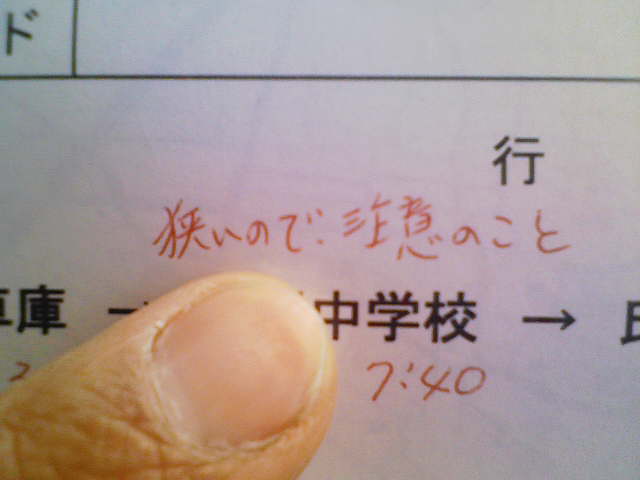 ド
行
狭いので、注意のこと
車庫 → 中学校 →
7:40